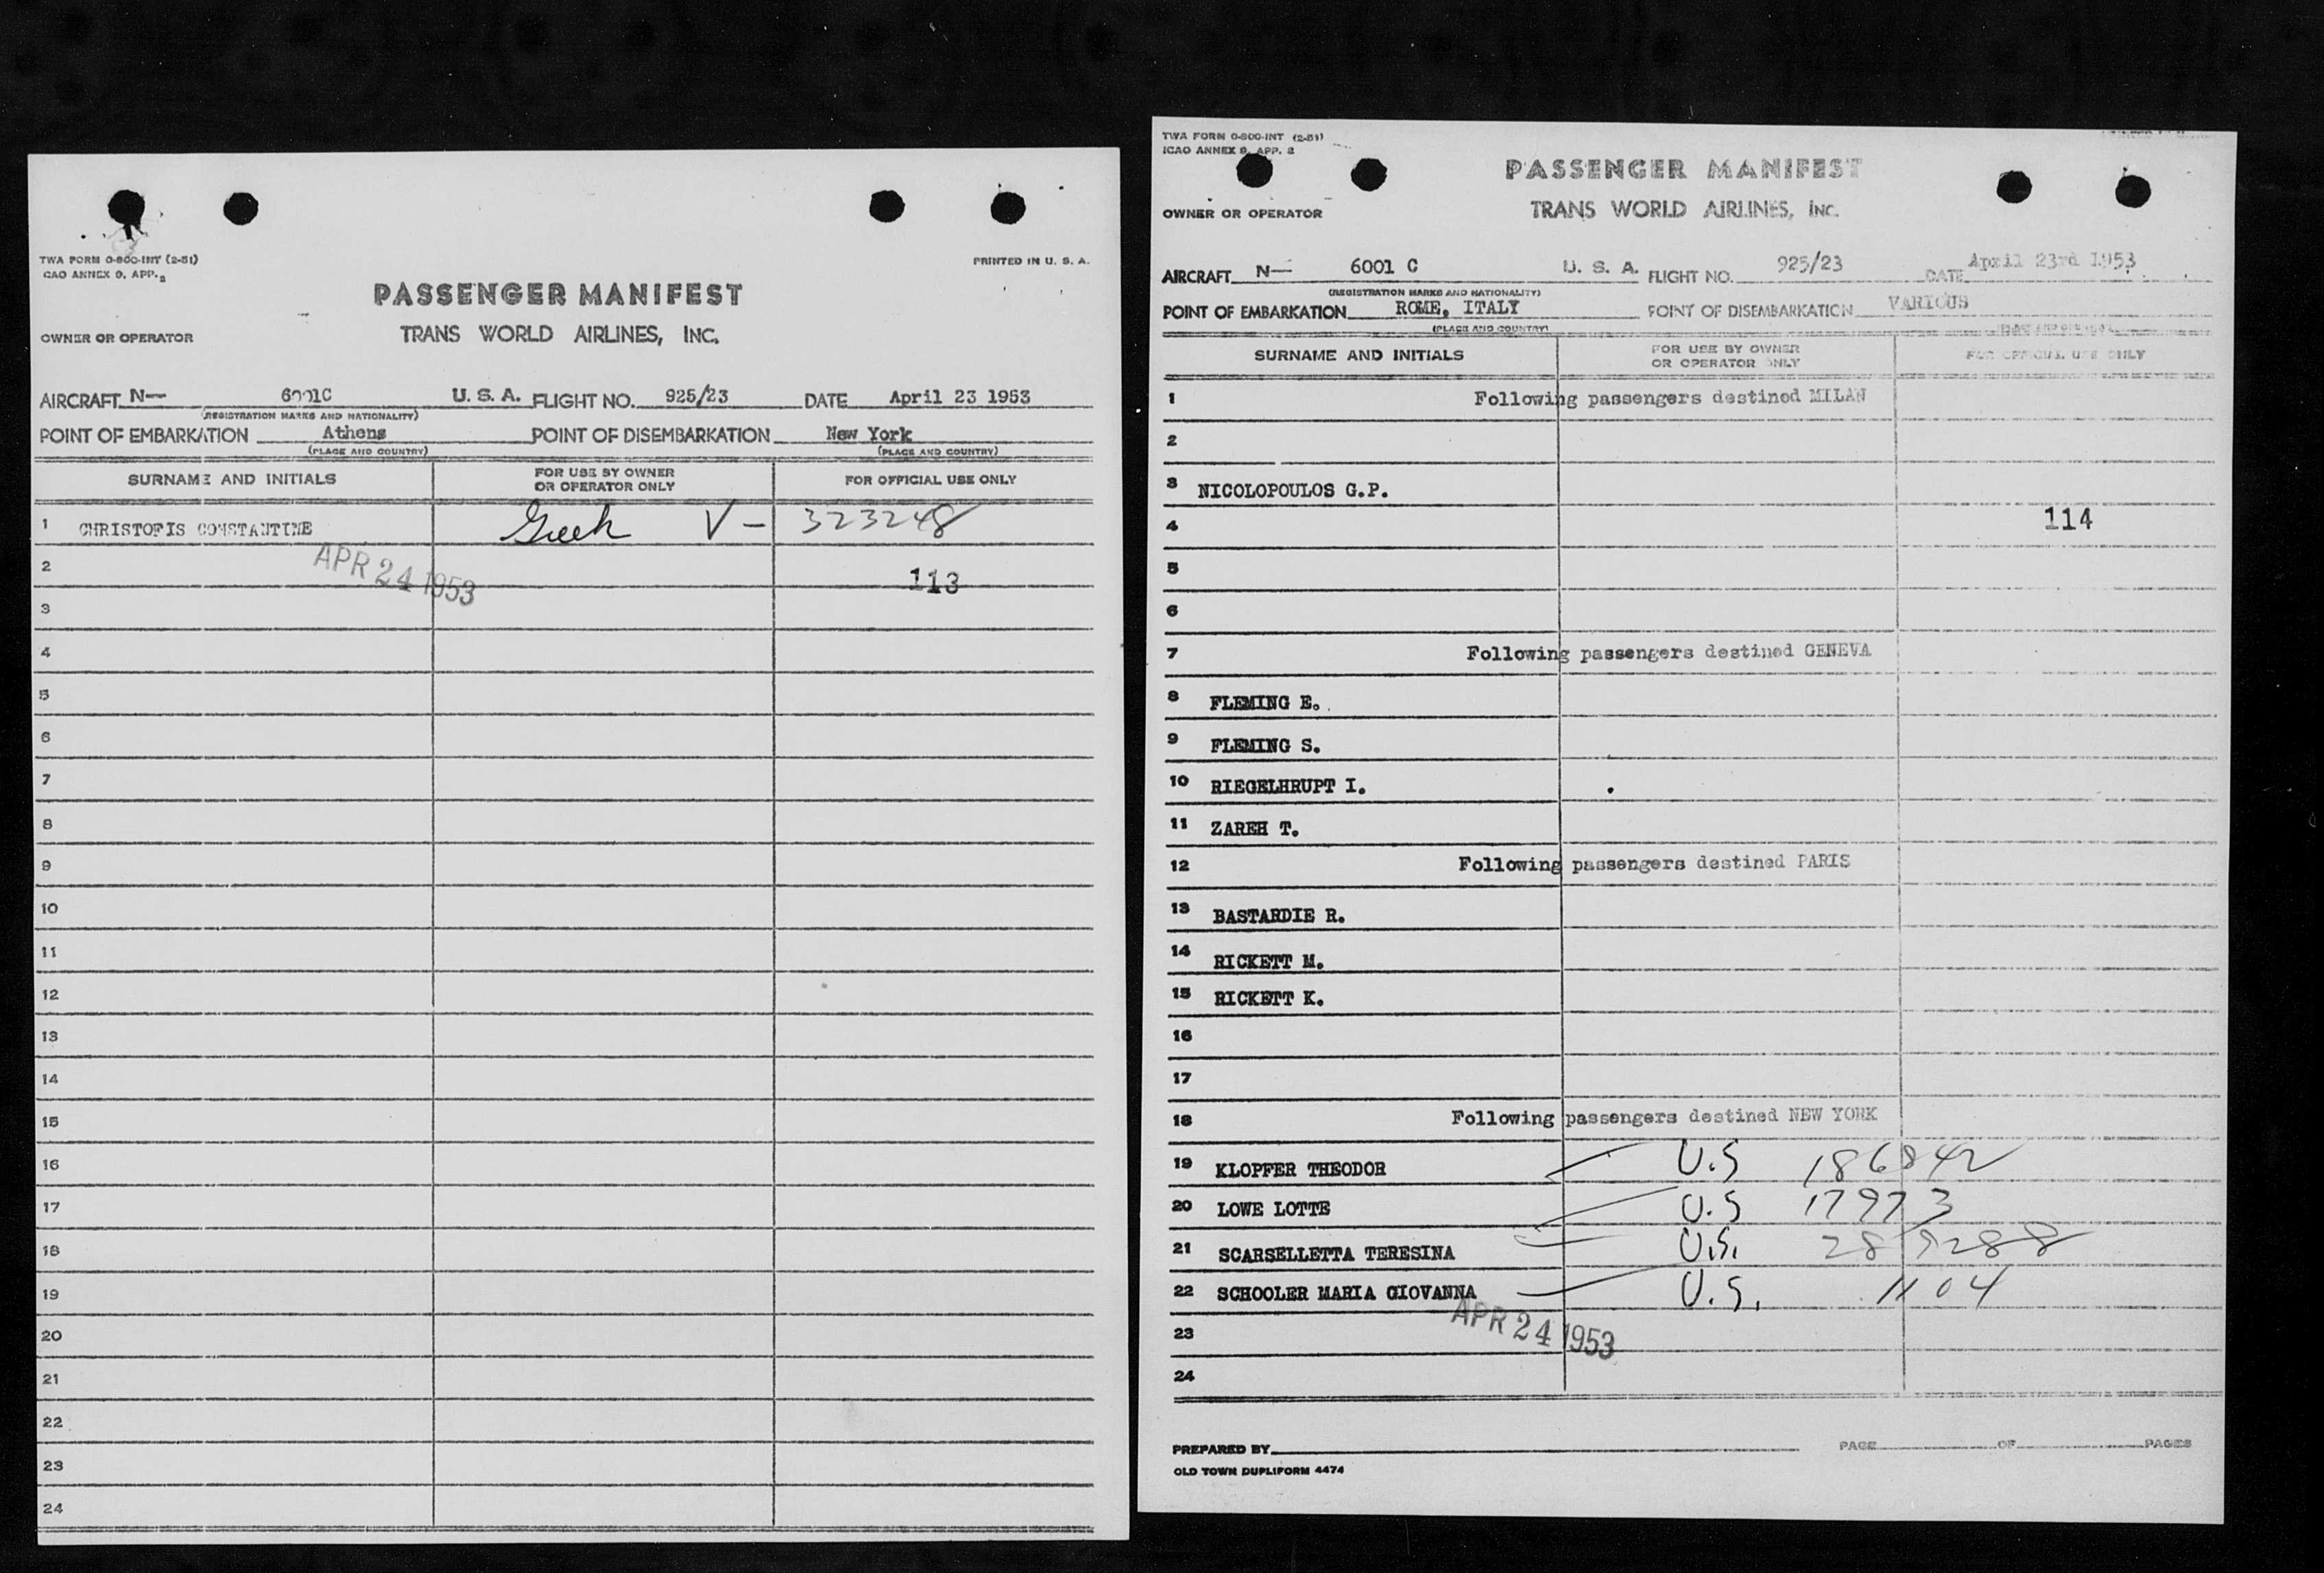 TWA FORM 0-800-INT (2-51)
CAO ANNEX 9, APP. 2
PRINTED IN U. S. A.
PASSENGER MANIFEST
OWNER OR OPERATOR
TRANS WORLD AIRLINES, INC.
AIRCRAFT N— 6001C U. S. A. FLIGHT NO. 925/23 DATE April 23 1953
(REGISTRATION MARKS AND NATIONALITY)
POINT OF EMBARKATION Athens POINT OF DISEMBARKATION New York
(PLACE AND COUNTRY) (PLACE AND COUNTRY)
SURNAME AND INITIALS FOR USE BY OWNER OR OPERATOR ONLY FOR OFFICIAL USE ONLY
1 CHRISTOFIS CONSTANTINE Greek V— 323248
2 APR 24 1953 113
3
4
5
6
7
8
9
10
11
12
13
14
15
16
17
18
19
20
21
22
23
24
TWA FORM 0-800-INT (2-51)
ICAO ANNEX 9, APP. 2
PASSENGER MANIFEST
OWNER OR OPERATOR
TRANS WORLD AIRLINES, INC.
AIRCRAFT N— 6001 C U. S. A. FLIGHT NO. 925/23 DATE April 23rd 1953
(REGISTRATION MARKS AND NATIONALITY)
POINT OF EMBARKATION ROME, ITALY POINT OF DISEMBARKATION VARIOUS
(PLACE AND COUNTRY)
SURNAME AND INITIALS FOR USE BY OWNER OR OPERATOR ONLY FOR OFFICIAL USE ONLY
1 Following passengers destined MILAN
2
3 NICOLOPOULOS G.P.
4 114
5
6
7 Following passengers destined GENEVA
8 FLEMING E.
9 FLEMING S.
10 RIEGELHRUPT I.
11 ZAREH T.
12 Following passengers destined PARIS
13 BASTARDIE R.
14 RICKETT M.
15 RICKETT K.
16
17
18 Following passengers destined NEW YORK
19 KLOPFER THEODOR U.S 186842
20 LOWE LOTTE U.S 17973
21 SCARSELLETTA TERESINA U.S. 289288
22 SCHOOLER MARIA GIOVANNA U.S. 1104
APR 24 1953
23
24
PREPARED BY PAGE OF PAGES
OLD TOWN DUPLIFORM 4474